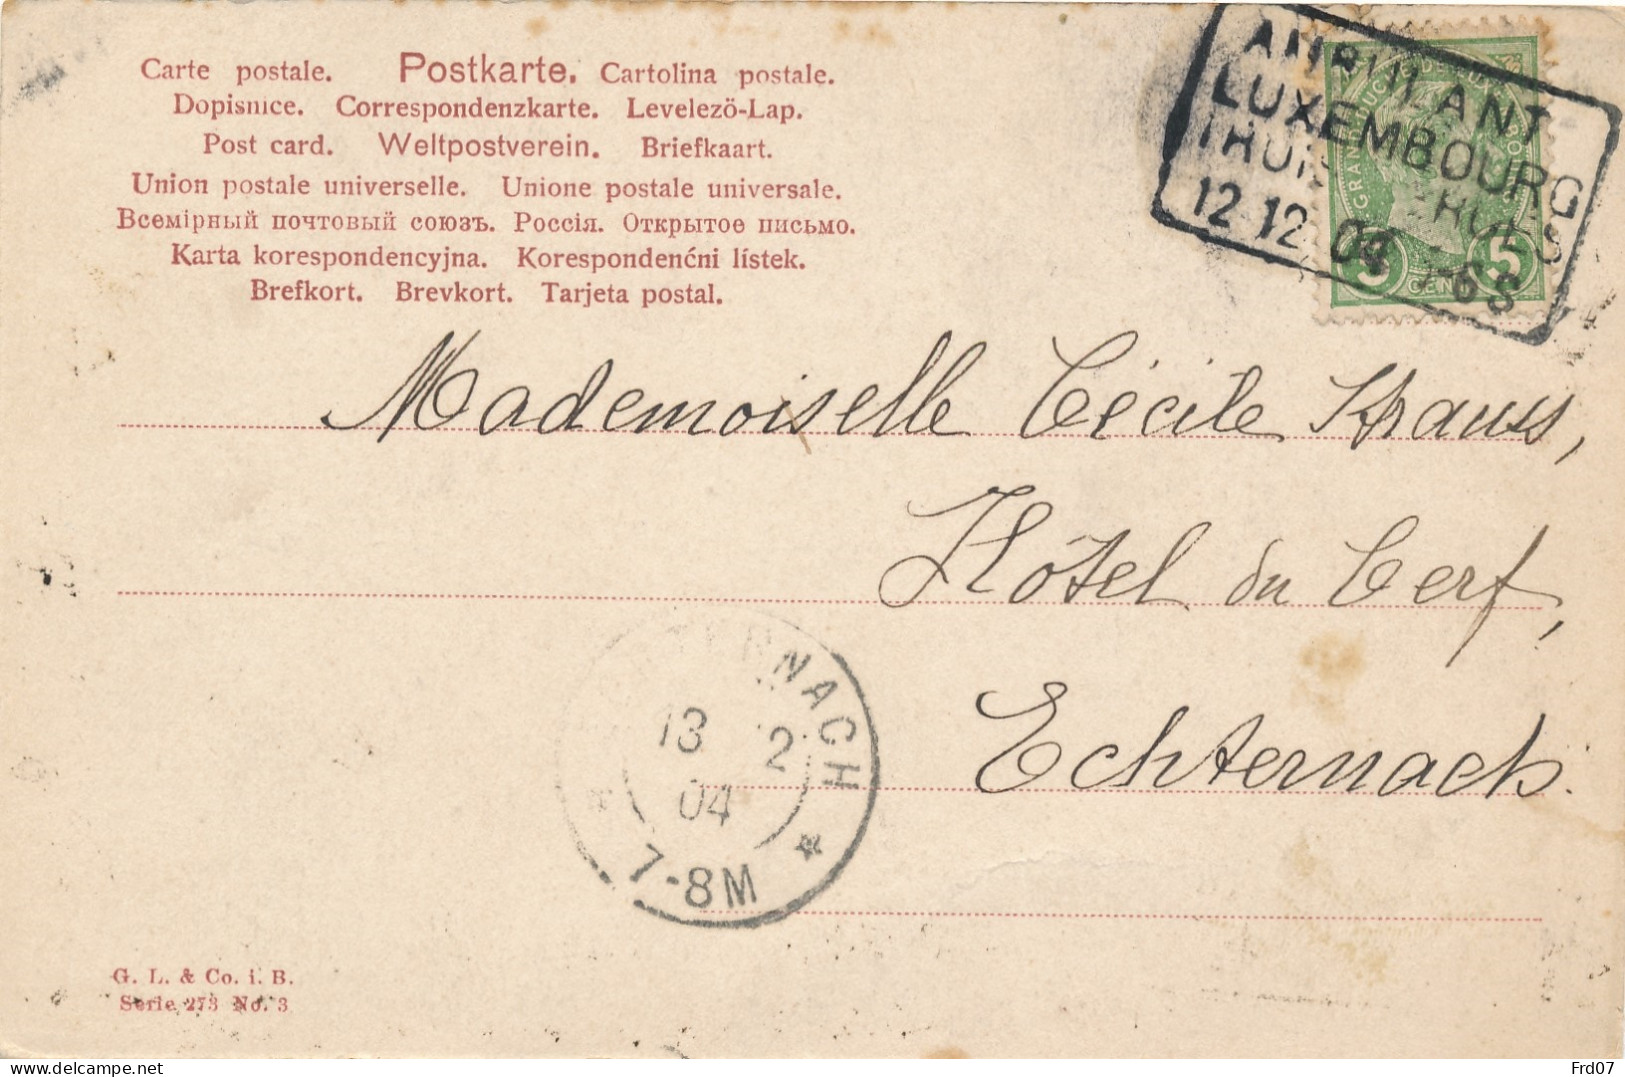 Carte postale. Postkarte. Cartolina postale.
Dopisnice. Correspondenzkarte. Levelezö-Lap.
Post card. Weltpostverein. Briefkaart.
Union postale universelle. Unione postale universale.
Всемірный почтовый союзъ. Россія. Открытое письмо.
Karta korespondencyjna. Korespondenćni lístek.
Brefkort. Brevkort. Tarjeta postal.
AMBULANT
LUXEMBOURG
12 12 04
5 5
Mademoiselle Cécile Krauss,
Hôtel du Cerf,
Echternach.
13 2
04
7-8M
G. L. & Co. i. B.
Serie 273 No. 3
Frd07